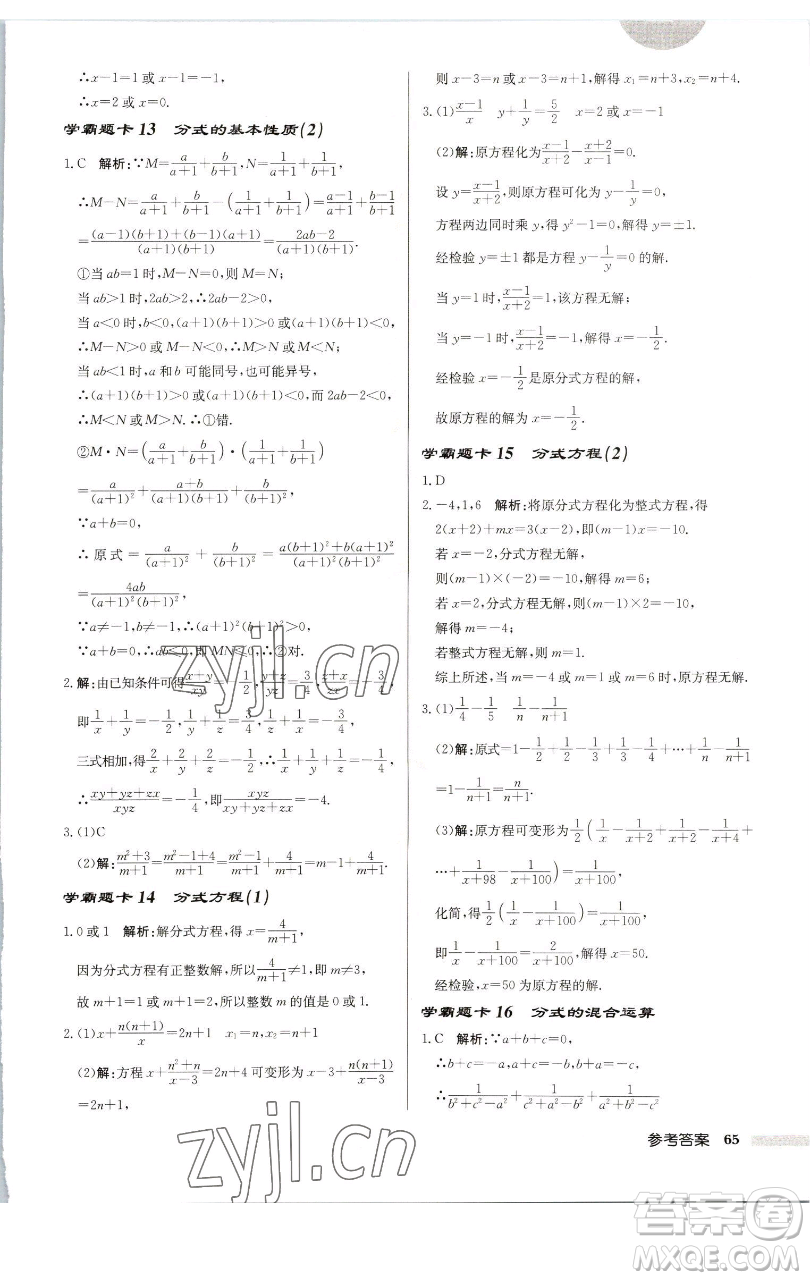 ∴x-1=1或x-1=-1,
∴x=2或x=0.
学霸题卡13 分式的基本性质(2)
1.C 解析:∵M=a/(a+1)+b/(b+1),N=1/(a+1)+1/(b+1),
∴M-N=a/(a+1)+b/(b+1)-(1/(a+1)+1/(b+1))=(a-1)/(a+1)+(b-1)/(b+1)
=((a-1)(b+1)+(b-1)(a+1))/((a+1)(b+1))=(2ab-2)/((a+1)(b+1)).
①当ab=1时,M-N=0,则M=N;
当ab>1时,2ab>2,∴2ab-2>0,
当a<0时,b<0,(a+1)(b+1)>0或(a+1)(b+1)<0,
∴M-N>0或M-N<0,∴M>N或M<N;
当ab<1时,a和b可能同号,也可能异号,
∴(a+1)(b+1)>0或(a+1)(b+1)<0,而2ab-2<0,
∴M<N或M>N.∴①错.
②M·N=(a/(a+1)+b/(b+1))·(1/(a+1)+1/(b+1))
=a/(a+1)²+(a+b)/((a+1)(b+1))+b/(b+1)².
∵a+b=0,
∴原式=a/(a+1)²+b/(b+1)²=(a(b+1)²+b(a+1)²)/((a+1)²(b+1)²)
=4ab/((a+1)²(b+1)²),
∵a≠-1,b≠-1,∴(a+1)²(b+1)²>0.
∵a+b=0,∴ab<0,即MN<0,∴②对.
2.解:由已知条件可得(x+y)/xy=-1/2,(y+z)/yz=3/4,(z+x)/zx=-3/4,
即1/x+1/y=-1/2,1/y+1/z=3/4,1/z+1/x=-3/4,
三式相加,得2/x+2/y+2/z=-1/2,∴1/x+1/y+1/z=-1/4,
∴(xy+yz+zx)/xyz=-1/4,即xyz/(xy+yz+zx)=-4.
3.(1)C
(2)解:(m²+3)/(m+1)=(m²-1+4)/(m+1)=(m²-1)/(m+1)+4/(m+1)=m-1+4/(m+1).
学霸题卡14 分式方程(1)
1.0或1 解析:解分式方程,得x=4/(m+1),
因为分式方程有正整数解,所以4/(m+1)≠1,即m≠3,
故m+1=1或m+1=2,所以整数m的值是0或1.
2.(1)x+n(n+1)/x=2n+1 x₁=n x₂=n+1
(2)解:方程x+(n²+n)/(x-3)=2n+4可变形为x-3+n(n+1)/(x-3)
=2n+1,
则x-3=n或x-3=n+1,解得x₁=n+3,x₂=n+4.
3.(1)(x-1)/x y+1/y=5/2 x=2或x=-1
(2)解:原方程化为(x-1)/(x+2)-(x+2)/(x-1)=0.
设y=(x-1)/(x+2),则原方程可化为y-1/y=0.
方程两边同时乘y,得y²-1=0,解得y=±1.
经检验y=±1都是方程y-1/y=0的解.
当y=1时,(x-1)/(x+2)=1,该方程无解;
当y=-1时,(x-1)/(x+2)=-1,解得x=-1/2.
经检验x=-1/2是原分式方程的解,
故原方程的解为x=-1/2.
学霸题卡15 分式方程(2)
1.D
2.-4,1,6 解析:将原分式方程化为整式方程,得
2(x+2)+mx=3(x-2),即(m-1)x=-10.
若x=-2,分式方程无解,
则(m-1)×(-2)=-10,解得m=6;
若x=2,分式方程无解,则(m-1)×2=-10,
解得m=-4;
若整式方程无解,则m=1.
综上所述,当m=-4或m=1或m=6时,原方程无解.
3.(1)1/4-1/5 1/n-1/(n+1)
(2)解:原式=1-1/2+1/2-1/3+1/3-1/4+…+1/n-1/(n+1)
=1-1/(n+1)=n/(n+1).
(3)解:原方程可变形为1/2(1/x-1/(x+2)+1/(x+2)-1/(x+4)+
…+1/(x+98)-1/(x+100))=1/(x+100),
化简,得1/2(1/x-1/(x+100))=1/(x+100),
即1/x-1/(x+100)=2/(x+100),解得x=50.
经检验,x=50为原方程的解.
学霸题卡16 分式的混合运算
1.C 解析:∵a+b+c=0,
∴b+c=-a,a+c=-b,a+b=-c,
∴1/(b²+c²-a²)+1/(a²+c²-b²)+1/(a²+b²-c²)
参考答案 65
zyjl.cn
zyjl.cn
答案圈
MXQE.COM